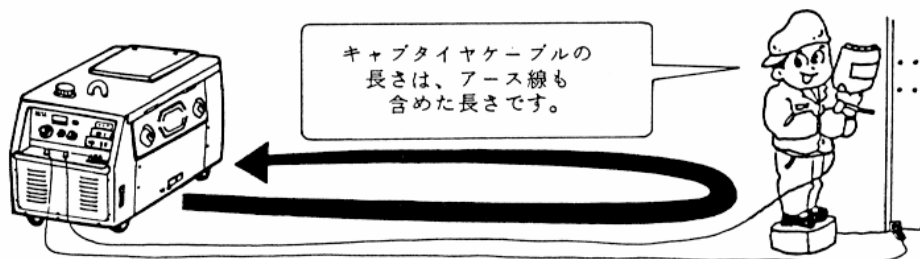 キャブタイヤケーブルの
長さは、アース線も
含めた長さです。